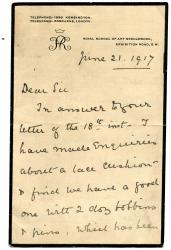 TELEPHONE-1556 KENSINGTON.
TELEGRAMS-
LONDON.
ROYAL SCHOOL OF ART NEEDLEWORK,
EXHIBITION ROAD, S.W.
June 21. 1917
Dear Sir
In answer to your
letter of the 18th inst. I
have made enquiries
about a lace cushion
& find we have a good
one with 2 doz bobbins
& pins, which has been